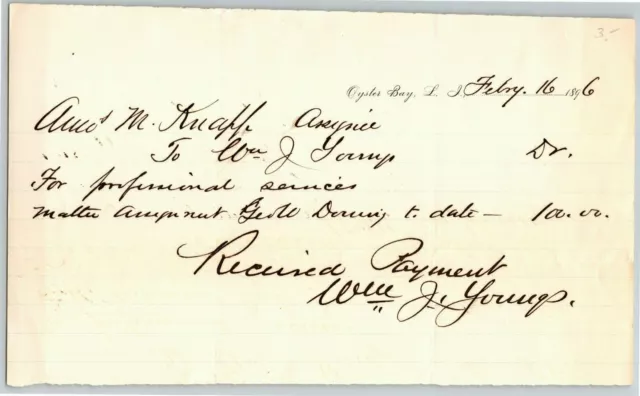 3.-
Oyster Bay, L. I., Febry. 16 1896
Amos M. Knapp Assignee
To Wm J Youngs Dr.
For professional services
matter Assignment Downing to date — 100.00.
Received Payment
Wm J. Youngs.